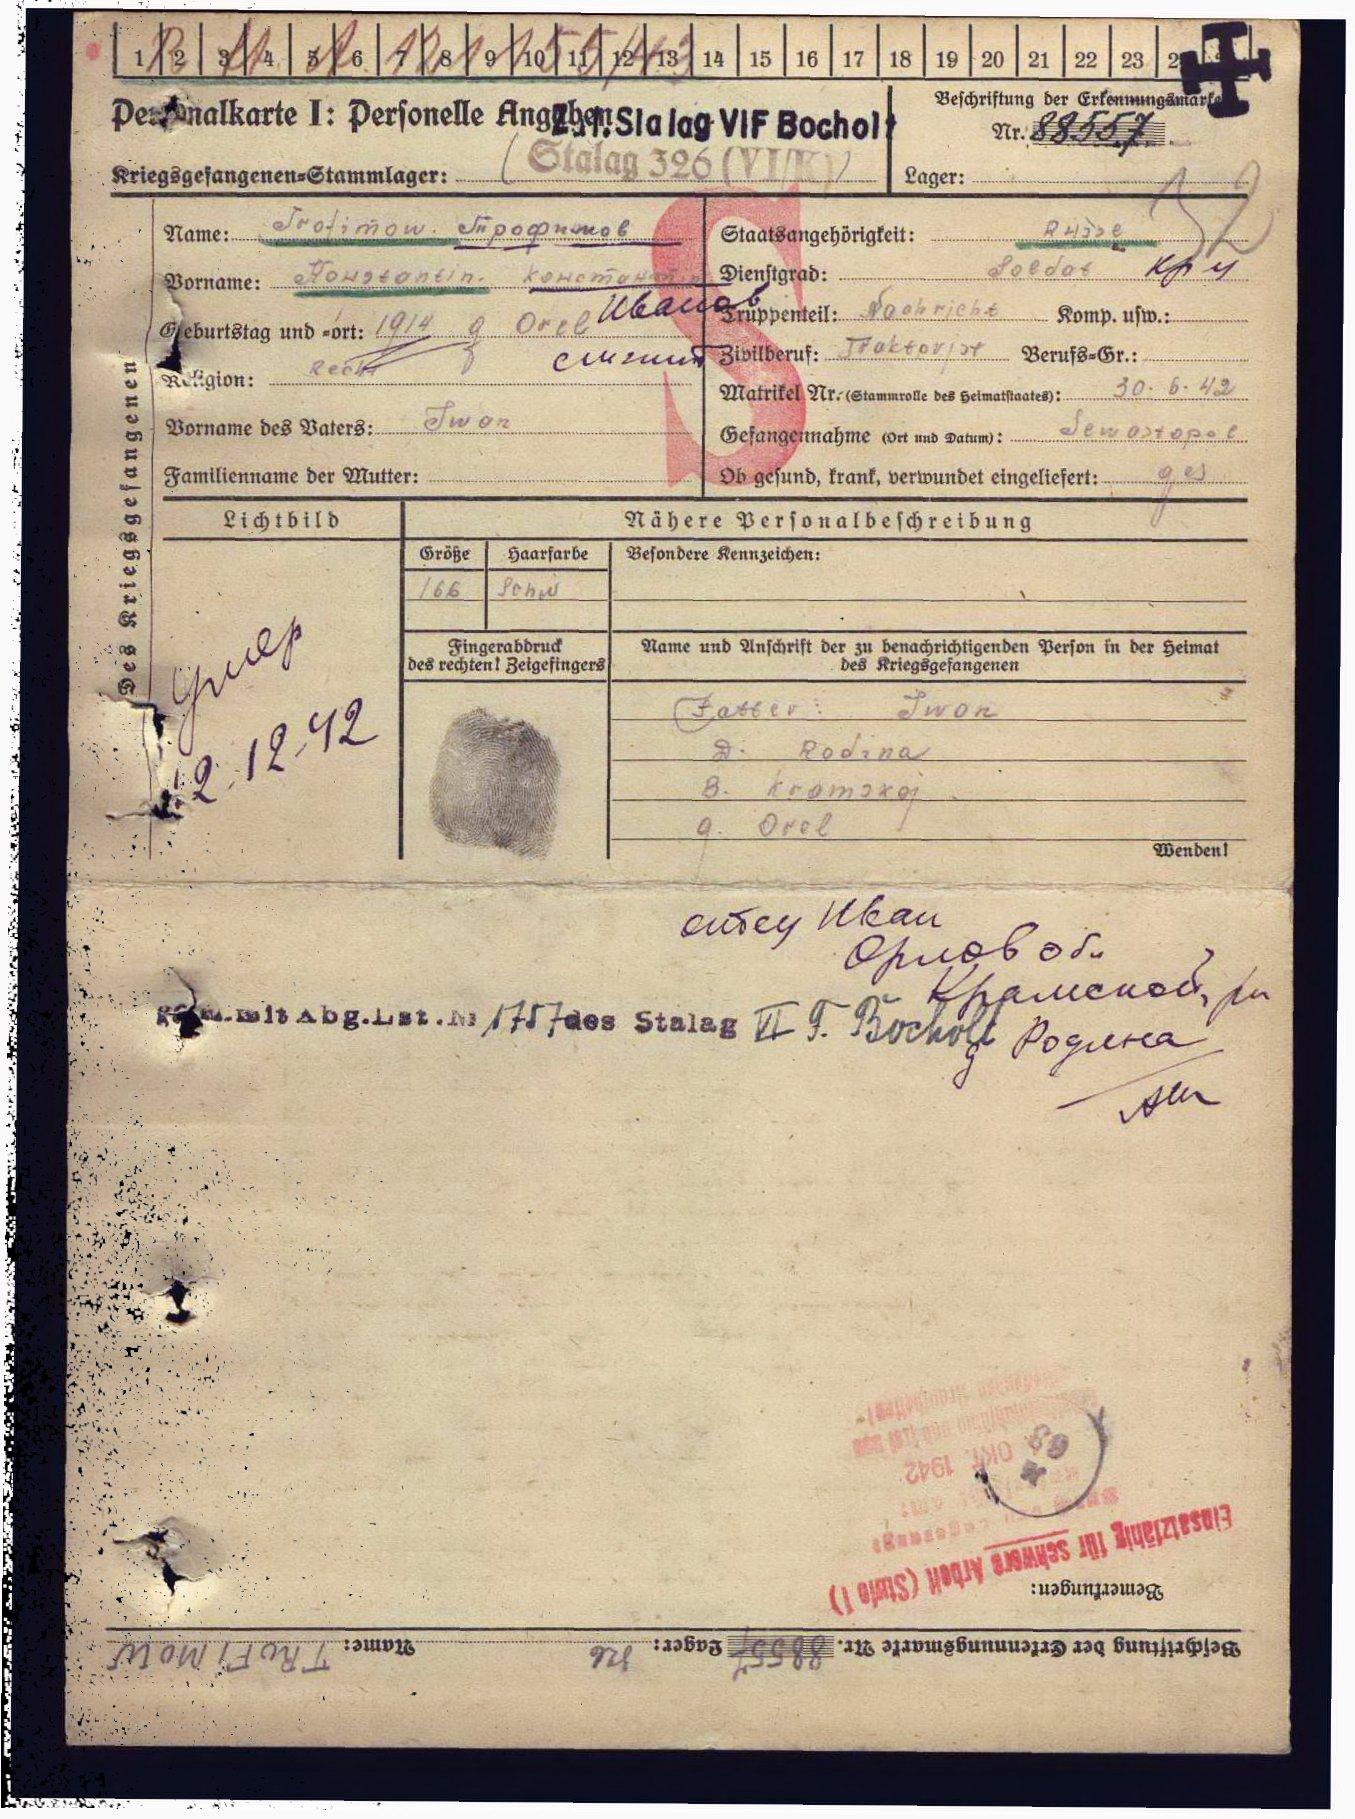 1 2 3 4 5 6 7 8 9 10 11 12 13 14 15 16 17 18 19 20 21 22 23
Personalkarte I: Personelle Angaben
Stalag VIF Bocholt
Beschriftung der Erkennungsmarke
Nr. 88557
Kriegsgefangenen-Stammlager: (Stalag 326 (VI/K))
Lager:
32
S
Des Kriegsgefangenen
Name: Trofimow. Трофимов
Vorname: Konstantin. Константин
Иванов
Geburtstag und -ort: 1914 g Orel
Religion:
Vorname des Vaters: Iwan
Familienname der Mutter:
Staatsangehörigkeit: Russe
Dienstgrad: Soldat кр ц
Truppenteil: Nachricht Komp. usw.:
Zivilberuf: Traktorist Berufs-Gr.:
Matrikel Nr. (Stammrolle des Heimatstaates): 30. 6. 42
Gefangennahme (Ort und Datum): Sewastopol
Ob gesund, krank, verwundet eingeliefert: ges
Lichtbild
Nähere Personalbeschreibung
Größe Haarfarbe Besondere Kennzeichen:
166 Schw
Fingerabdruck
des rechten! Zeigefingers
Name und Anschrift der zu benachrichtigenden Person in der Heimat
des Kriegsgefangenen
умер
2.12.42
Fatter: Iwan
D. Rodina
B. Kromskoj
g. Orel
Wenden!
отец Иван
Орлов об.
Крамской, рн
д Родина
gem. mit Abg.Lst.Nr 1757 des Stalag VI F. Bocholt
OKT. 1942
Einsatzfähig für schwere Arbeit (Stufe I)
Bemerkungen:
Beschriftung der Erkennungsmarke Nr. 88557 Lager: 326 Name: TROFIMOW